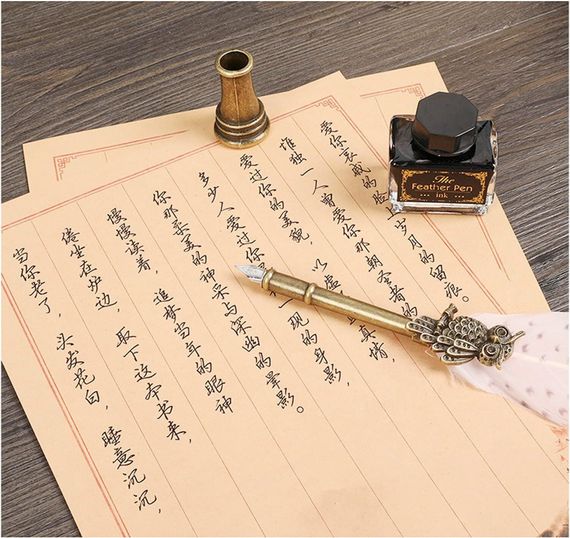 当你老了，头发花白，睡意沉沉，
倦坐在炉边，取下这本书来，
慢慢读着，追梦当年的眼神
你那柔美的神采与深幽的晕影。
多少人爱过你一现的身影，
爱过你的美貌，以虚真情，
惟独一人曾爱你那朝圣者的
爱你哀戚的脸上岁月的留痕。
The
Feather Pen
ink